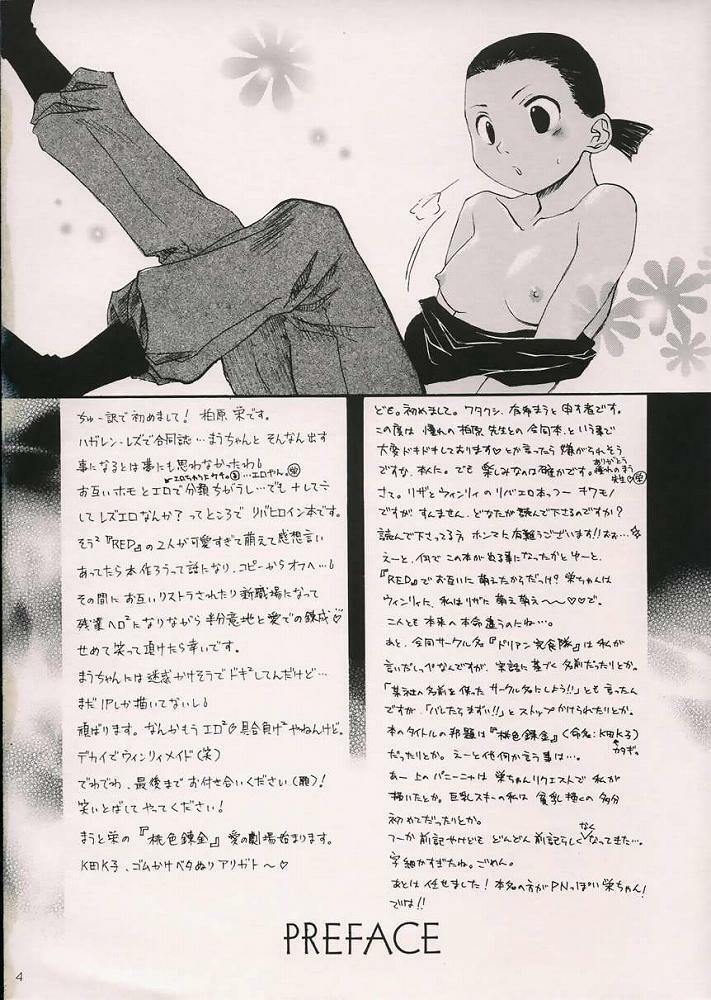 ちゅー訳で初めまして! 柏原 栄です。
ハガレン・レズで合同誌…まうちゃんと そんなん出す
事になるとは夢にも思わなかったわ!
お互い ホモとエロで分類ちがうし…でも 十して六
して レズエロなんか? ってところで リバヒロイン本です。
そう²『RED』の2人が可愛すぎて萌えて感想言い
あってたら 本作ろうって話になり、コピーからオフへ…!
その間に お互いリストラされたり 新職場になって
残業 ヘロ²になりながら 半分意地と愛での錬成♡
せめて笑って頂けたら幸いです。
まうちゃんには迷惑かけそうで ドキ²してんだけど…
まだ 1Pしか描いてないし!
頑張ります。なんかもう エロ²
具合負け²やねんけど。
デカイでウィンリィメイド(笑)
でわでわ、最後まで お付き合いください(願)!
笑いとばして やってください!
まうと栄の『桃色錬金』愛の劇場始まります。
K田K子、ゴムかけベタぬり アリガト〜♡
ども。初めまして。ワタクシ、
まうと申す者です。
この度は 憧れの柏原先生との合同本、という事で
大変ドキドキしております♡ とか言ってたら 嫌がられそう
ですな、本人に。でも 楽しみなのは確かです。
ありがとう
憧れのまう
先生♡栄
さて。リザとウィンリィのリバエロ本、つー キワモノ
ですが すんません、どなたが読んで下さるのですか?
読んで下さってる方 ホンマに有難うございます!!
えーと、何で この本が出る事になったかと ゆーと、
『RED』でお互いに 萌えたからだっけ? 栄ちゃんは
ウィンリィに、私は リザに 萌え萌え〜〜♡♡で。
二人とも 本来の 本命 違うのにね…。
あと、合同サークル名『ドリアン完食隊』は 私が
言いだしっぺなんですが、実話に基づく 名前だったりとか。
「某社の名前を使った サークル名にしよう!!」とも 言ったん
ですが、「バレたらまずい!!」と ストップかけられたりとか。
本のタイトルの邦題は『桃色錬金』(命名:K田K子)
カタギ。
だったりとか。えーと 他 何か 言う事は…。
あー 上の パニーニャは 栄ちゃんリクエストで 私が
描いたとか。巨乳スキーの私は 貧乳 描くの 多分
初めてだったりとか。
つーか 前記やけども どんどん 前記らしくなくなってきた…。
字 細かすぎたね。ごめん。
あとは 任せました! 本名の方が PNっぽい 栄ちゃん!
では!!
PREFACE
4